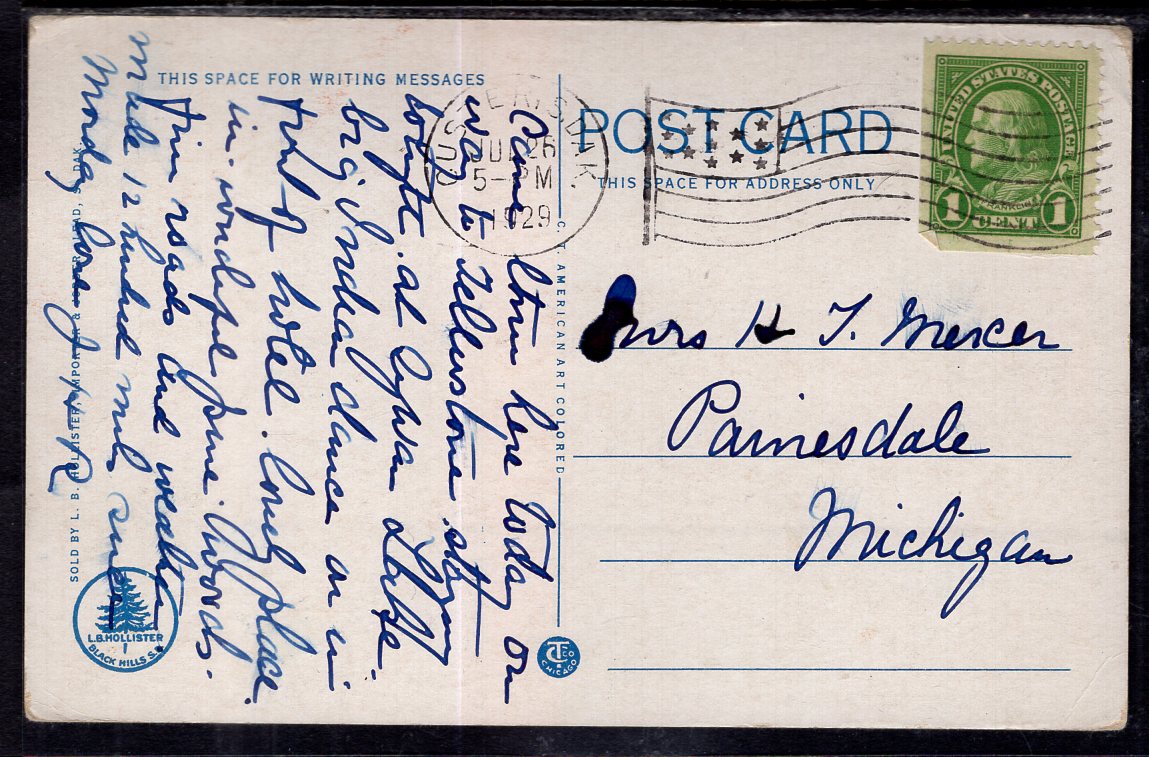 THIS SPACE FOR WRITING MESSAGES
Came here today on
way to Yellowstone. stop
to night at Sylvan Lodge.
big Indian dance on in
front of hotel. lovely place
in wonderful pine woods.
Fine roads and weather
made 12 hundred miles since
Monday
SOLD BY L. B. HOLLISTER, IMPORTER &
L.B. HOLLISTER
BLACK HILLS S.D.
C. T. AMERICAN ART COLORED
CT CO
CHICAGO
CUSTER, S. DAK.
26
5-PM
1929
POST CARD
THIS SPACE FOR ADDRESS ONLY
UNITED STATES POSTAGE
FRANKLIN
1 CENT 1
Mrs H T. Mercer
Painesdale
Michigan